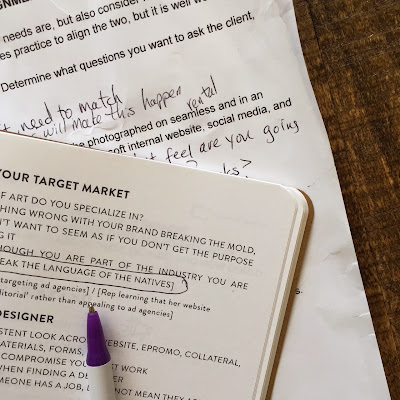 GNMENT
needs are, but also consider
es practice to align the two, but it is well w
Determine what questions you want to ask the client,
need to match
will make this happen
rental
photographed on seamless and in an
soft internal website, social media, and
feel are you going
YOUR TARGET MARKET
OF ART DO YOU SPECIALIZE IN?
THING WRONG WITH YOUR BRAND BREAKING THE MOLD,
N'T WANT TO SEEM AS IF YOU DON'T GET THE PURPOSE
G IT
HOUGH YOU ARE PART OF THE INDUSTRY YOU ARE
EAK THE LANGUAGE OF THE NATIVES]
targeting ad agencies] / [Rep learning that her website
ditorial' rather than appealing to ad agencies]
DESIGNER
STENT LOOK ACROSS WEBSITE, EPROMO, COLLATERAL,
ATERIALS, FORMS,
COMPROMISE YOU T WORK
WHEN FINDING A DE ER
MEONE HAS A JOB, NOT MEAN THEY A